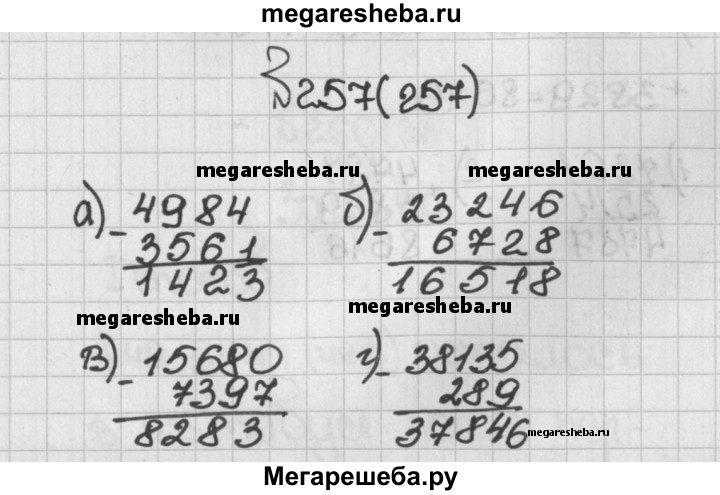 megaresheba.ru
№257(257)
megaresheba.ru megaresheba.ru
а) - 4984 б) - 23246
3561 6728
1423 16518
megaresheba.ru megaresheba.ru
в) - 15680 г) - 38135
7397 289
8283 37846 megaresheba.ru
Мегарешеба.ру